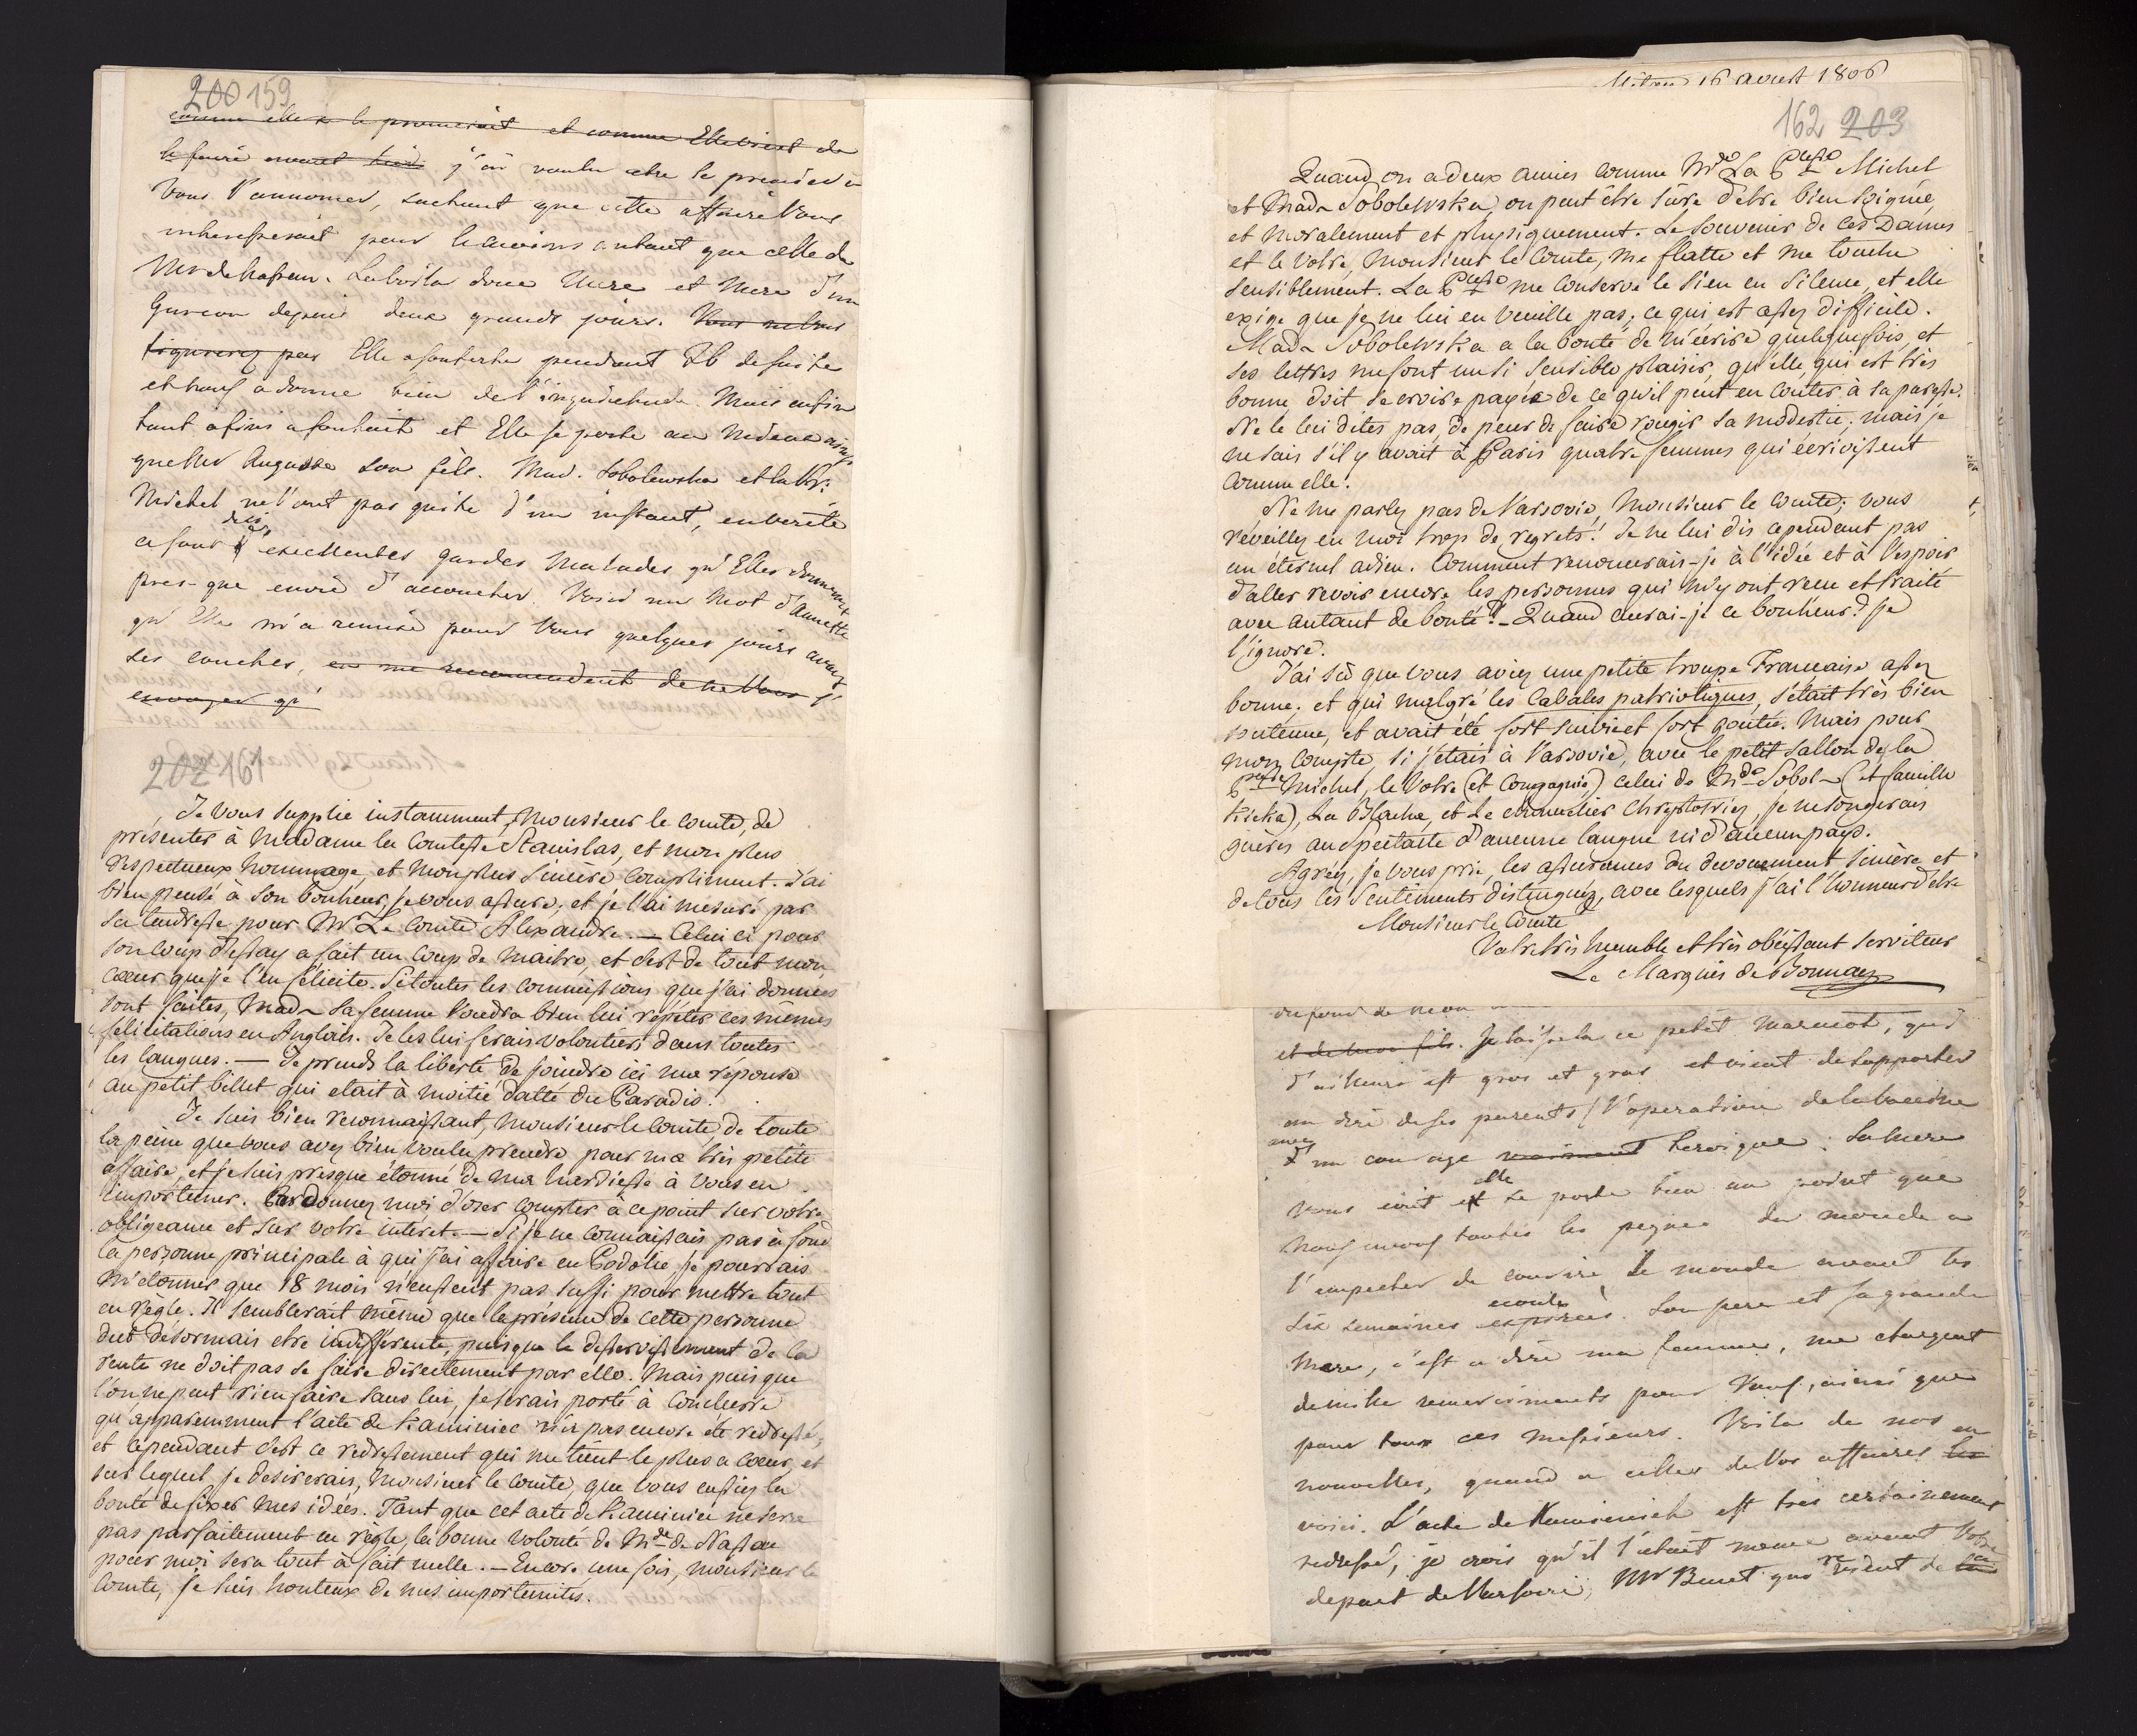 200 159
comme elle se le promenait et comme Elle vient de
le faire avant hier j'ai voulu etre le premier à
Vous l'annoncer, sachant que cette affaire Vous
interesserait pour le moins autant que celle de
Mr de Nassau. La voila donc Mere et Mere d'un
Garcon depuis deux grands jours. Vous ne Vous
figurerez pas Elle a souferte pendant 36 de suite
et nous a donné bien de l'inquietude. Mais enfin
tout a fini a souhait et Elle se porte au Mieux ainsi
que Mr Auguste son fils. Mad. Sobolewska et la Pr.
Michel ne l'ont pas quité d'un instant, en verité
ce sont des si excellentes gardes Malades qu'Elles donnent
pres-que envie d'accoucher. Voici un Mot d'Annette
qu'Elle m'a remise pour Vous quelques jours avant
ses couches, en me recomendent de ne Vous l'
envoyer qu'
202 161
Je vous supplie instamment, Monsieur le comte, de
présenter à Madame la Comtesse Stanislas, et mon plus
respectueux hommage et mon plus sincère compliment. J'ai
bien pensé à son bonheur, je vous assure, et je l'ai mesuré par
sa tendresse pour Mr Le Comte Alexandre. — Celui ci pour
son coup d'essay a fait un coup de maitre, et c'est de tout mon
cœur que je l'en félicite. Si toutes les commissions que j'ai données
sont faites, Made sa femme voudra bien lui répéter ces mêmes
félicitations en Anglois. Je les lui ferais volontiers dans toutes
les langues. — Je prends la liberté de joindre ici ma reponse
au petit billet qui etait à moitié datté du Paradis.
Je suis bien reconnaissant, Monsieur le Comte, de toute
la peine que vous avez bien voulu prendre pour ma très petite
affaire, et je suis presque étonné de ma hardiesse à vous en
importuner. Pardonnez moi d'oser compter à ce point sur votre
obligeance et sur votre interet. — Si je ne connaissais pas à fond
la personne principale à qui j'ai affaire en Podolie, je pourrais
m'étonner que 18 mois n'eussent pas suffi pour mettre tout
en règle. Il semblerait même que la présence de cette personne
dut désormais etre indifférente, puisque le desservissement de la
rente ne doit pas se faire directement par elle. Mais puisque
l'on ne peut rien faire sans lui, je serais porté à conclurre
qu'apparemment l'acte de Kaminiec n'a pas encore été redressé,
et cependant c'est ce redressement qui me tient le plus a cœur, et
sur lequel je desirerais, Monsieur le Comte, que vous eussiez la
bonté de fixer mes idées. Tant que cet acte de Kaminiec ne sera
pas parfaitement en règle, la bonne volonté de Mde de Nassau
pour moi sera tout à fait nulle. — Encore une fois, Monsieur le
Comte, je suis honteux de mes importunités.
Mitau 16 aoust 1806
162 203
Quand on a deux amies comme Mde La Pcesse Michel
et Made Sobolewska, on peut être sûre d'etre bien soignée,
et moralement et physiquement. Le souvenir de ces Dames
et le Votre, Monsieur le Comte, me flatte et me touche
sensiblement. La Pcesse me conserve le sien en silence, et elle
exige que je ne lui en veuille pas; ce qui est assez difficile.
Made Sobolewska a la bonté de m'écrire quelquefois, et
ses lettres me font un si sensible plaisir, qu'elle, qui est très
bonne, doit se croire payée de ce qu'il peut en couter à sa paresse.
Ne le lui dites pas, de peur de faire rougir sa modestie; mais je
ne sais s'il y avait à Paris quatre femmes qui écrivissent
comme elle.
Ne me parlez pas de Varsovie, Monsieur le Comte; vous
réveillez en moi trop de regrets! Je ne lui dis cependant pas
un éternel adieu. Comment renoncerais-je à l'idée et à l'espoir
d'aller revoir encore les personnes qui m'y ont reçu et traité
avec autant de bonté? — Quand aurai-je ce bonheur? je
l'ignore.
J'ai sû que vous aviez une petite troupe Française assez
bonne, et qui malgré les Cabales patriotiques, s'était très bien
soutenue, et avait été fort suivie et fort goutée. Mais pour
mon compte, si j'étais à Varsovie, avec le petit sallon de la
Pcesse Michel, le Votre (et Compagnie) celui de Mde Sobol~ (et famille
Kicka), La Blache, et Le
guères au Spectacle d'aucune langue ni d'aucun pays.
Agréez, je vous prie, les assurances du devouement sincère et
de tous les sentiments distingués, avec lesquels j'ai l'honneur d'etre
Monsieur le Comte
Votre très humble et très obéissant serviteur
Le Marquis de Bonnay
et de mon fils. Je baise la ce petit marmot, qui
d'ailleurs est gros et gras et vient de supporter
au dire de ses parents l'operation de la vaccine
avec d'un courage vraiment heroique. La Mere
Vous ecrit et elle se porte bien au point que
nous avons toutes les peines du monde a
l'empecher de courire le monde avant les
six semaines expirées. Son pere et sa grande
Mere, c'est a dire ma femme, me chargent
de mille remerciments pour Vous, ainsi que
pour tous ces messieurs. Voila de nos
nouvelles, quand a celles de Vos affaires les en
voici. L'acte de Kamieniek est tres certainement
redressé, je crois qu'il l'etait meme avant Votre
depart de Varsovie, Mr Buret qui revient de